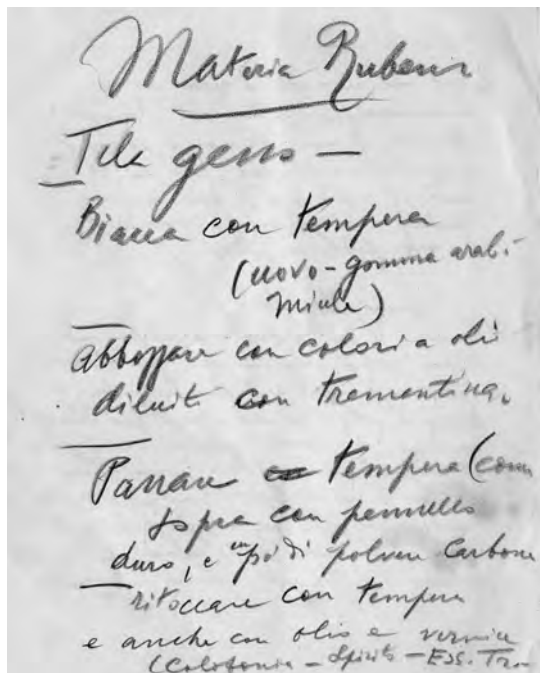 Materia Rubens
Tela gesso —
Biacca con tempera
(uovo - gomma arab.
miele)
abbozzare con colori a olio
diluiti con trementina.
Passare tempera (come
sopra con pennello
duro, e un pò di polvere carbone
ritoccare con tempera
e anche con olio e vernice
(Colofonia - Spirito - Ess. Tr.